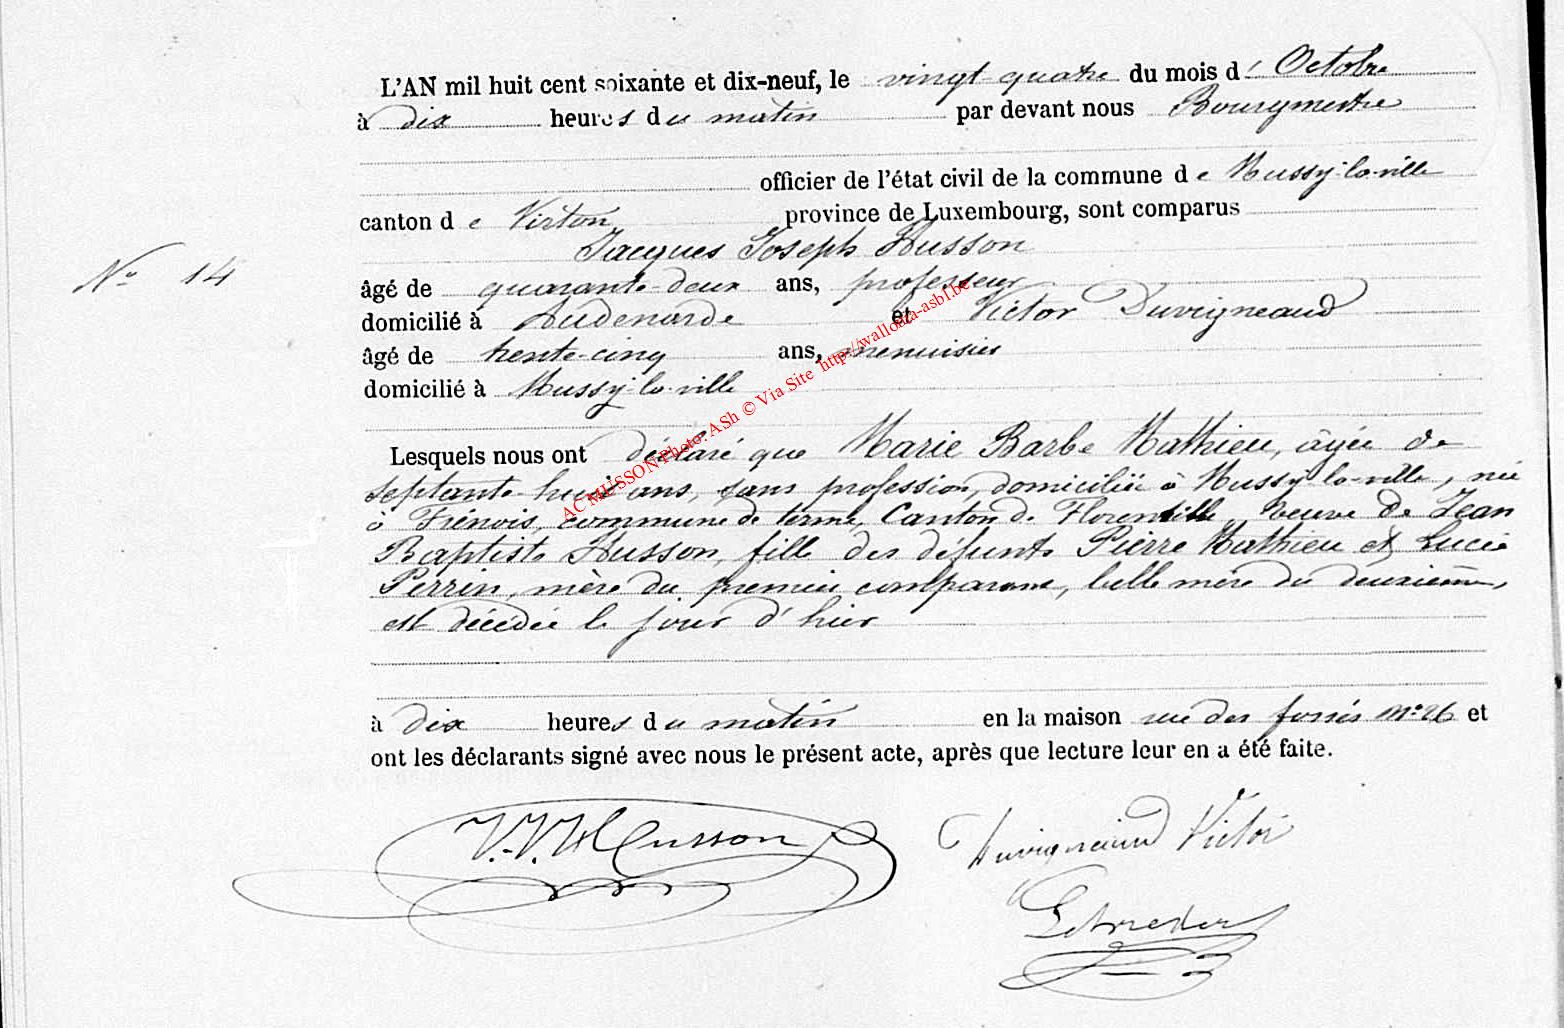 L'AN mil huit cent soixante et dix-neuf, le vingt-quatre du mois d'Octobre
à dix heures du matin par devant nous Bourgmestre
officier de l'état civil de la commune de Mussy-la-ville
canton de Virton province de Luxembourg, sont comparus
Jacques Joseph Husson
N° 14
âgé de quarante-deux ans, professeur
domicilié à Audenarde et Victor Duvigneaud
âgé de trente-cinq ans, menuisier
domicilié à Mussy-la-ville
AC MUSSON Photo: ASh © Via Site http://wallonia-asbl.be
Lesquels nous ont déclaré que Marie Barbe Mathieu, âgée de
septante-huit ans, sans profession, domiciliée à Mussy-la-ville, née
à Frénois, commune de terme, Canton de Florenville, veuve de Jean
Baptiste Husson, fille des défunts Pierre Mathieu et Lucie
Perrin, mère du premier comparant, belle mère du deuxième,
est décédée le jour d'hier
à dix heures du matin en la maison rue des fossés n° 26 et
ont les déclarants signé avec nous le présent acte, après que lecture leur en a été faite.
J.J. Husson
Duvigneaud Victor